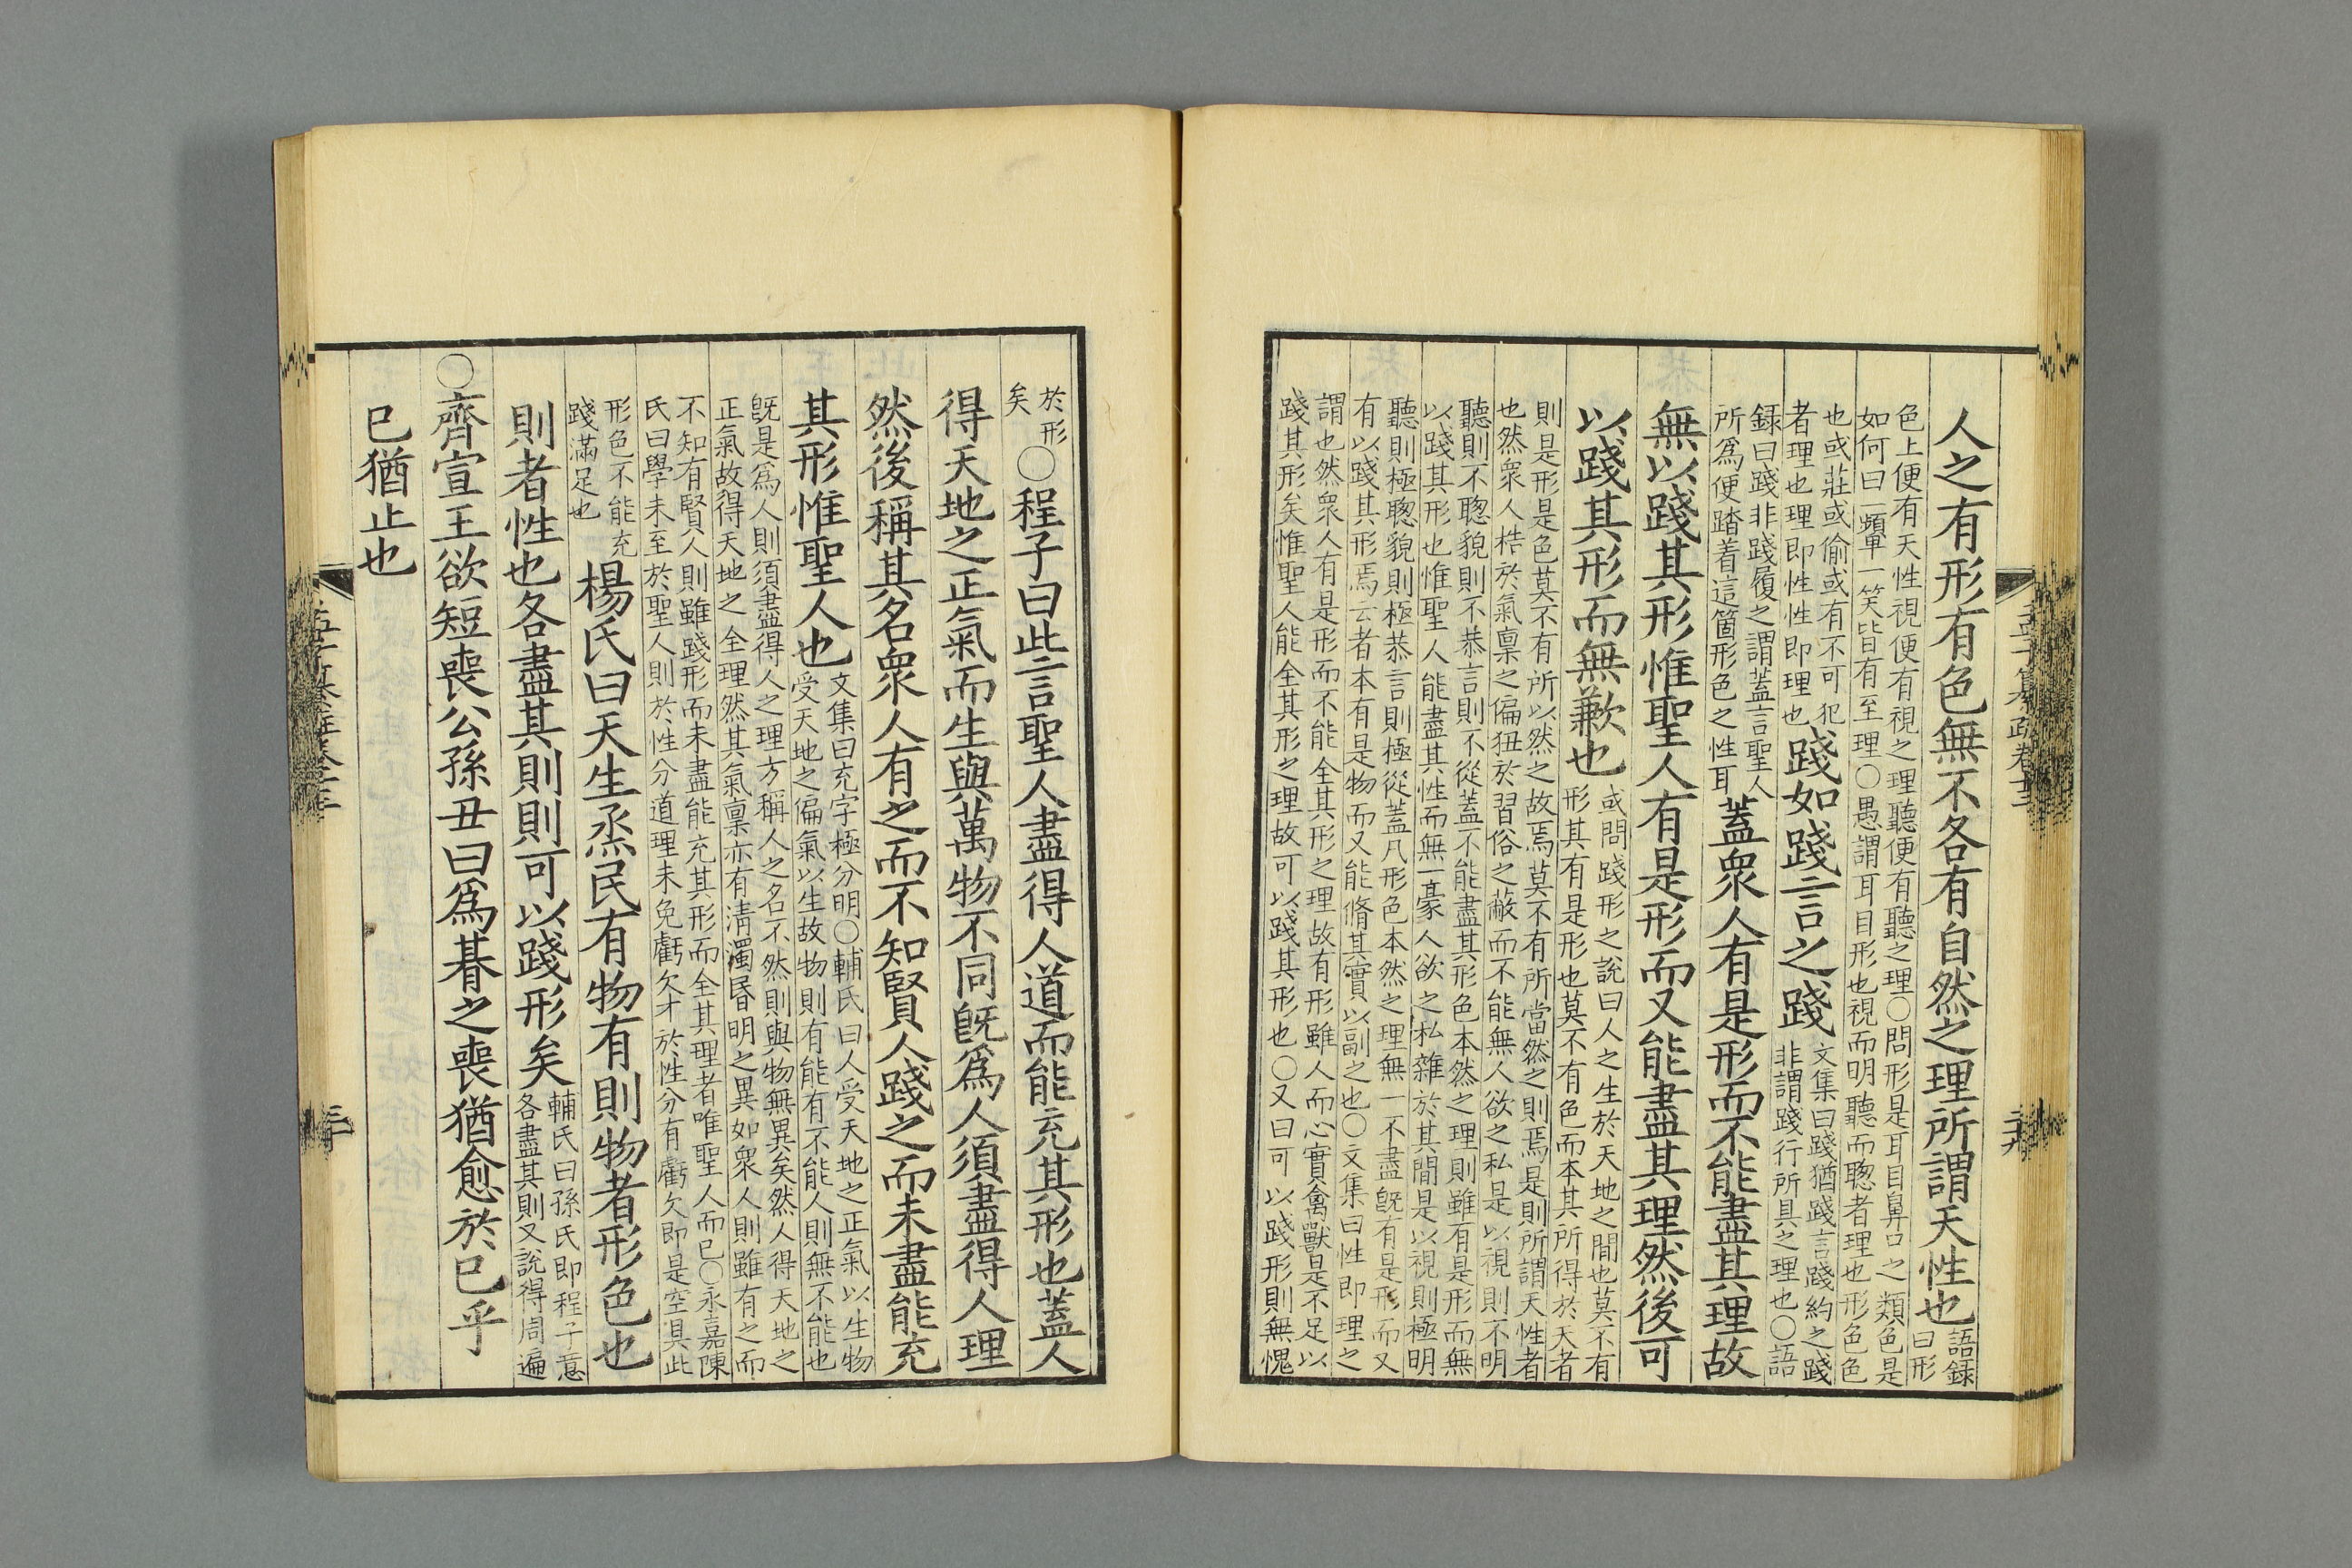 人之有形有色無不各有自然之理所謂天性也語録
曰形
色上便有天性視便有視之理聽便有聽之理○問形是耳目鼻口之類色是
如何曰一顰一笑皆有至理○愚謂耳目形也視而明聽而聦者理也形色色
也或莊或偷或有不可犯
者理也理即性性即理也踐如踐言之踐文集曰踐猶踐言踐約之踐
非謂踐行所具之理也○語
録曰踐非踐履之謂蓋言聖人
所爲便踏着這箇形色之性耳蓋衆人有是形而不能盡其理故
無以踐其形惟聖人有是形而又能盡其理然後可
以踐其形而無歉也或問踐形之說曰人之生於天地之間也莫不有
形其有是形也莫不有色而本其所得於天者
則是形是色莫不有所以然之故焉莫不有所當然之則焉是則所謂天性者
也然衆人梏於氣稟之偏狃於習俗之蔽而不能無人欲之私是以視則不明
聽則不聦貌則不恭言則不從蓋不能盡其形色本然之理則雖有是形而無
以踐其形也惟聖人能盡其性而無一毫人欲之私雜於其間是以視則極明
聽則極聦貌則極恭言則極從蓋凡形色本然之理無一不盡旣有是形而又
有以踐其形焉云者本有是物而又能脩其實以副之也○文集曰性即理之
謂也然衆人有是形而不能全其形之理故有形雖人而心實禽獸是不足以
踐其形矣惟聖人能全其形之理故可以踐其形也○又曰可以踐形則無愧
孟子纂疏卷十三
二十九
於形
矣○程子曰此言聖人盡得人道而能充其形也蓋人
得天地之正氣而生與萬物不同旣爲人須盡得人理
然後稱其名衆人有之而不知賢人踐之而未盡能充
其形惟聖人也文集曰充字極分明○輔氏曰人受天地之正氣以生物
受天地之偏氣以生故物則有能有不能人則無不能也
旣是爲人則須盡得人之理方稱人之名不然則與物無異矣然人得天地之
正氣故得天地之全理然其氣稟亦有清濁昏明之異如衆人則雖有之而
不知有賢人則雖踐形而未盡能充其形而全其理者唯聖人而已○永嘉陳
氏曰學未至於聖人則於性分道理未免虧欠才於性分有虧欠即是空具此
形色不能充
踐滿足也楊氏曰天生烝民有物有則物者形色也
則者性也各盡其則則可以踐形矣輔氏曰孫氏即程子意
各盡其則又說得周遍
○齊宣王欲短喪公孫丑曰爲朞之喪猶愈於已乎
已猶止也
三十